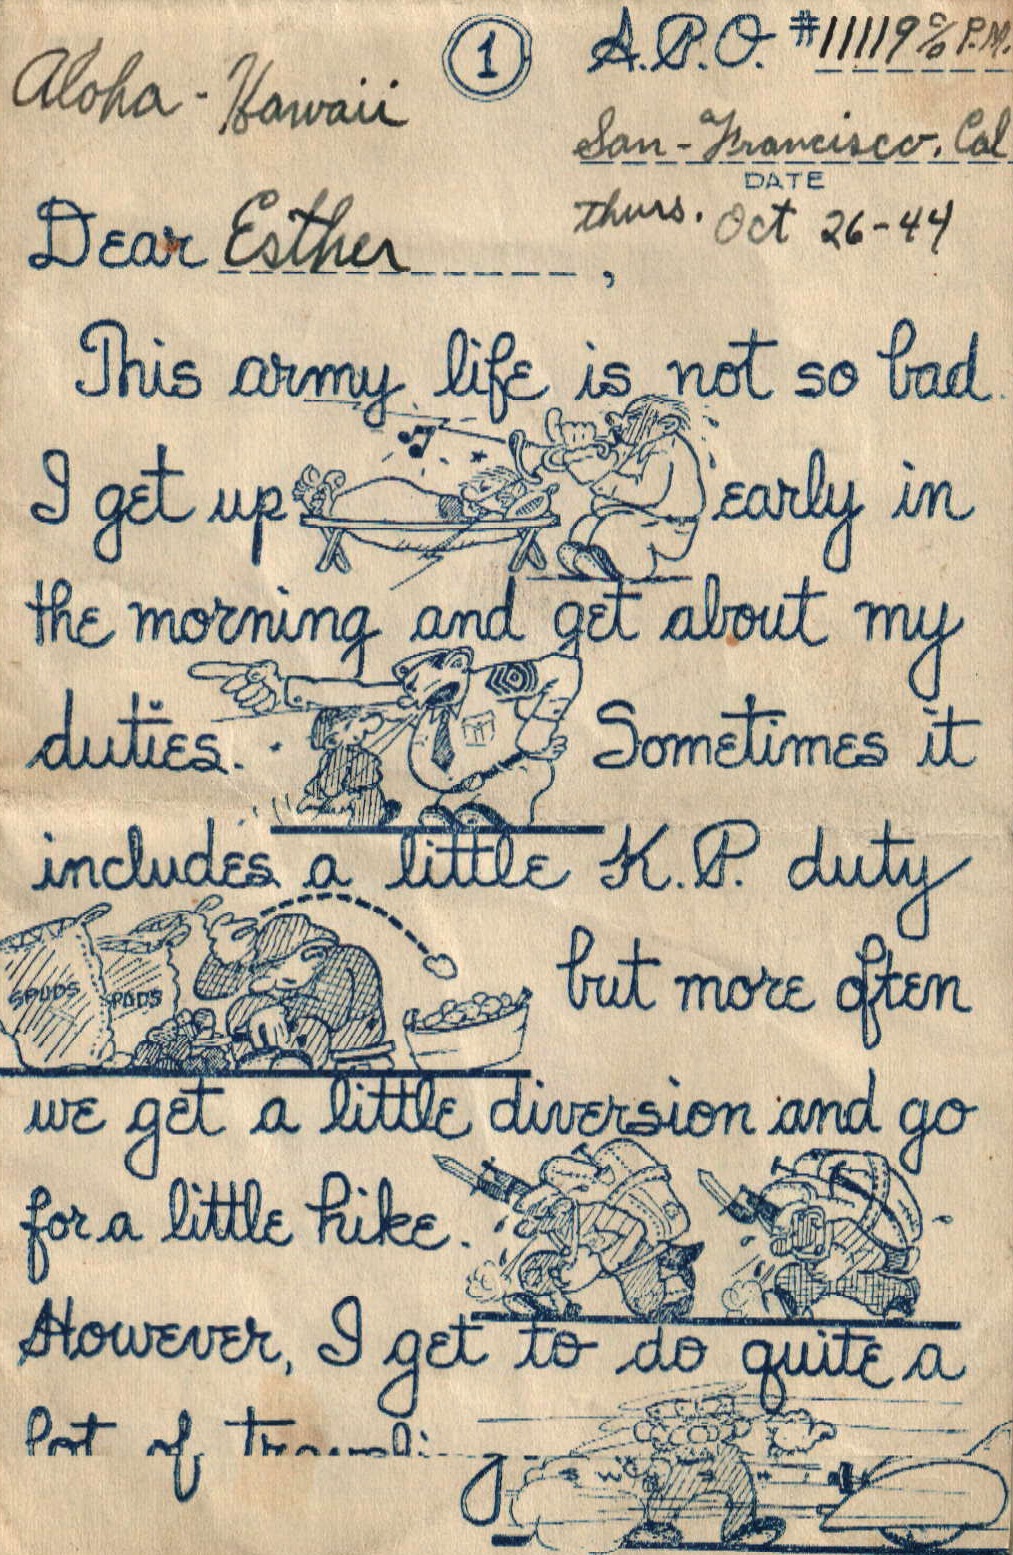 1
A.P.O. #11119 c/o P.M.
Aloha - Hawaii
San-Francisco, Cal
DATE
Thurs. Oct 26-44
Dear Esther,
This army life is not so bad.
I get up early in
the morning and get about my
duties. Sometimes it
includes a little K.P. duty
SPUDS SPUDS but more often
we get a little diversion and go
for a little hike.
However, I get to do quite a
lot of